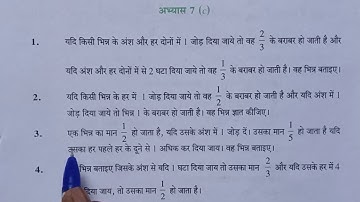 अभ्यास 7 (c)
1. यदि किसी भिन्न के अंश और हर दोनों में 1 जोड़ दिया जाये तो वह 2/3 के बराबर हो जाती है और
यदि अंश और हर दोनों में से 2 घटा दिया जाये तो वह 1/3 के बराबर हो जाती है। वह भिन्न बताइए।
2. यदि किसी भिन्न के हर में 1 जोड़ दिया जाये तो वह 1/2 के बराबर हो जाती है और यदि अंश में 1
जोड़ दिया जाये तो भिन्न 1 के बराबर हो जाती है। वह भिन्न ज्ञात कीजिए।
3. एक भिन्न का मान 1/2 हो जाता है, यदि उसके अंश में 1 जोड़ दें। उसका मान 1/5 हो जाता है यदि
उसका हर पहले हर के दुने से 1 अधिक कर दिया जाय। वह भिन्न बताइए।
4. भिन्न बताइए जिसके अंश से यदि 1 घटा दिया जाय तो उसका मान 2/3 और यदि उसके हर में 4
दिया जाय, तो उसका मान 1/2 हो जाता है।